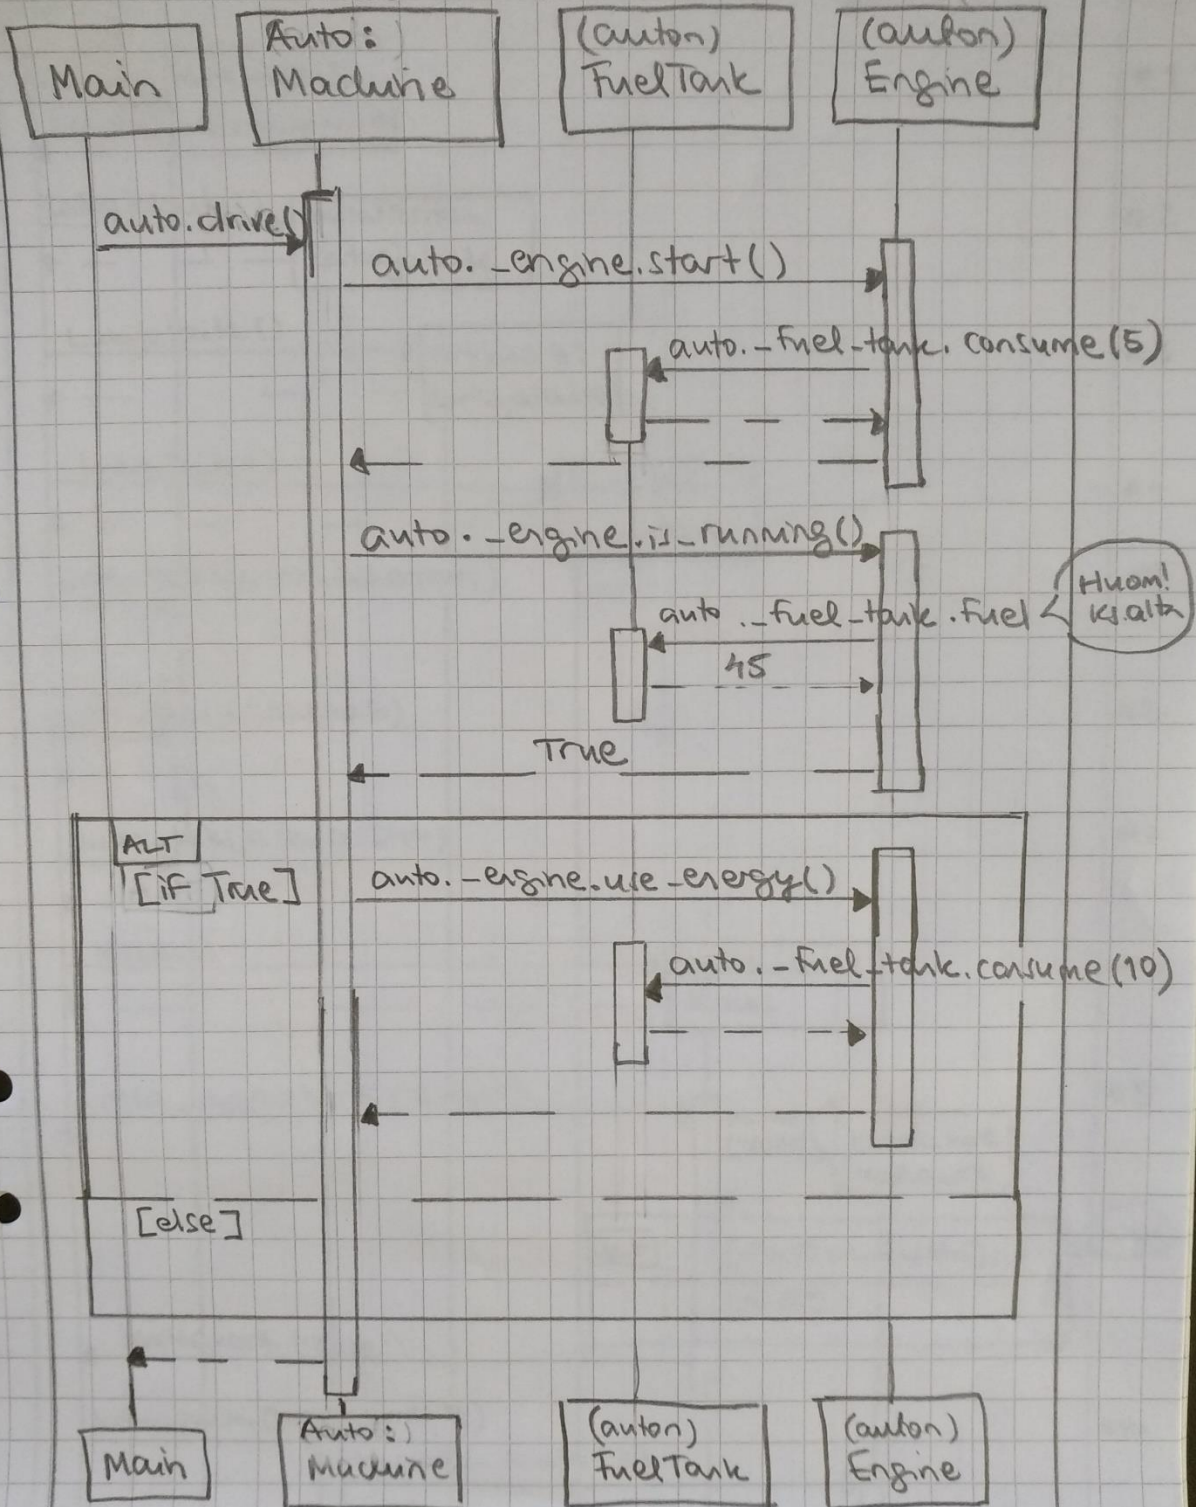 Main
Auto:
Machine
(auton)
FuelTank
(auton)
Engine
auto.drive()
auto._engine.start()
auto._fuel_tank.consume(5)
auto._engine.is_running()
auto._fuel_tank.fuel
Huom!
ks.alta
45
True
ALT
[if True]
auto._engine.use_energy()
auto._fuel_tank.consume(10)
[else]
Main
Auto:
Machine
(auton)
FuelTank
(auton)
Engine